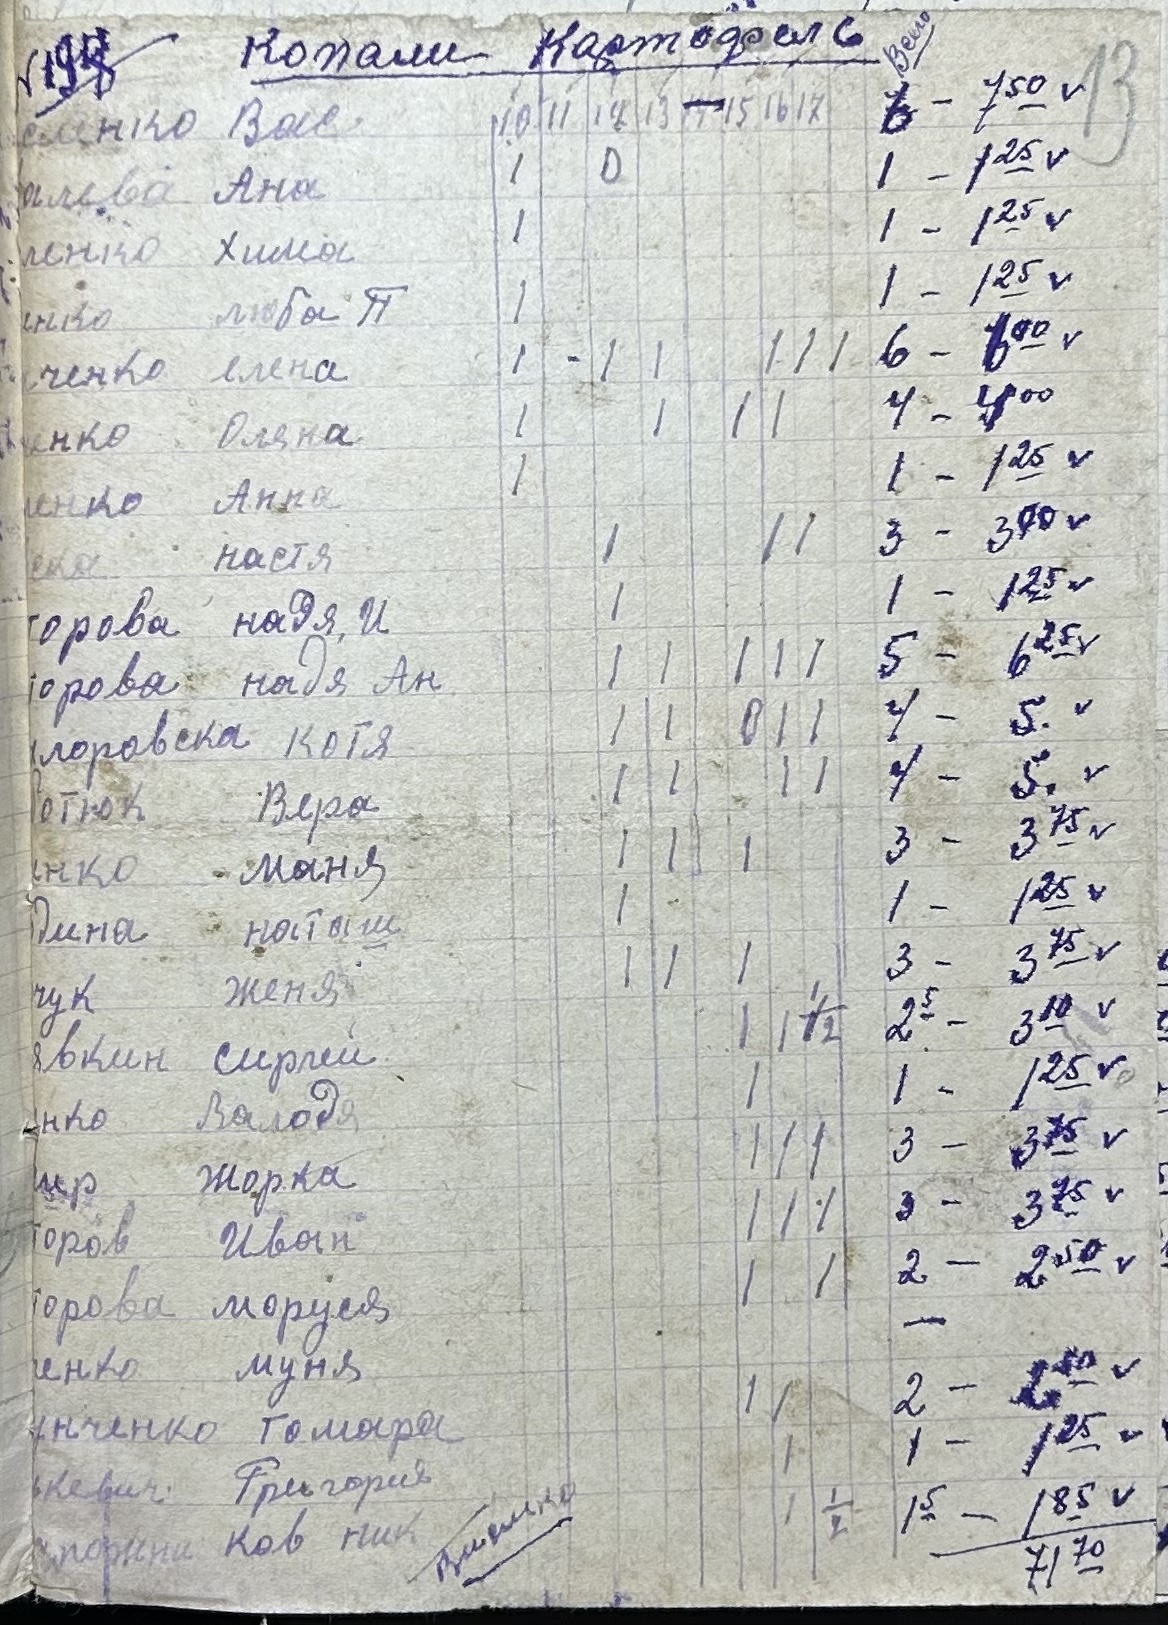 Копали Картофель Всего 13
сленко Вас 10 11 12 13 14 15 16 17 6 - 7 50 v
алева Ана 1 0 1 - 1 25 v
ленко Хима 1 1 - 1 25 v
енко люба П 1 1 - 1 25 v
ченко елена 1 - 1 1 1 1 1 6 - v
енко Оляна 1 1 1 1 4 - 4 00
ленко Анна 1 1 - 1 25 v
ска настя 1 1 1 3 - 3 70 v
торова надя, И 1 1 - 1 25 v
торова надя Ан 1 1 1 1 1 5 - 6 25 v
лоровска котя 1 1 0 1 1 4 - 5. v
отюк Вера 1 1 1 1 4 - 5. v
енко маня 1 1 1 3 - 3 75 v
дина наташ 1 1 - 1 25 v
чук женя 1 1 1 3 - 3 75 v
явкин сиргей 1 1 1/2 2 5 - 3 10 v
енко Валодя 1 1 - 1 25 v
мир жорка 1 1 1 3 - 3 75 v
торов Иван 1 1 1 3 - 3 75 v
торова моруся 1 1 2 - 2 50 v
ленко муня —
инченко томара 1 1 2 - 2 50 v
кевич Григорий 1 1 - 1 25 v
ков ник 1 1/2 1 5 - 1 85 v
71 70